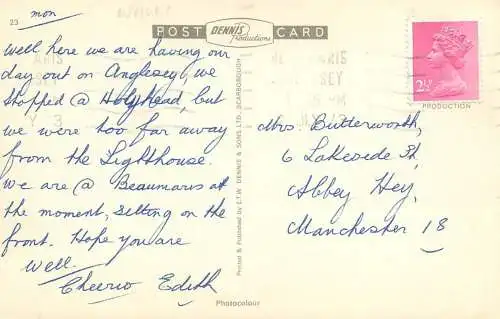 23
mon
POST CARD
DENNIS
Productions
Well here we are having our
day out on Anglesey, we
stopped @ Holyhead, but
we were too far away
from the Lighthouse.
We are @ Beaumaris at
the moment, sitting on the
front. Hope you are
well.
Cheerio Edith
Printed & Published by E.T.W. DENNIS & SONS LTD., SCARBOROUGH
Photocolour
2½
PRODUCTION
Mrs Butterworth,
6 Lakeside St,
Abbey Hey,
Manchester 18
ARIS
SEY
Y 3
ARIS
SEY